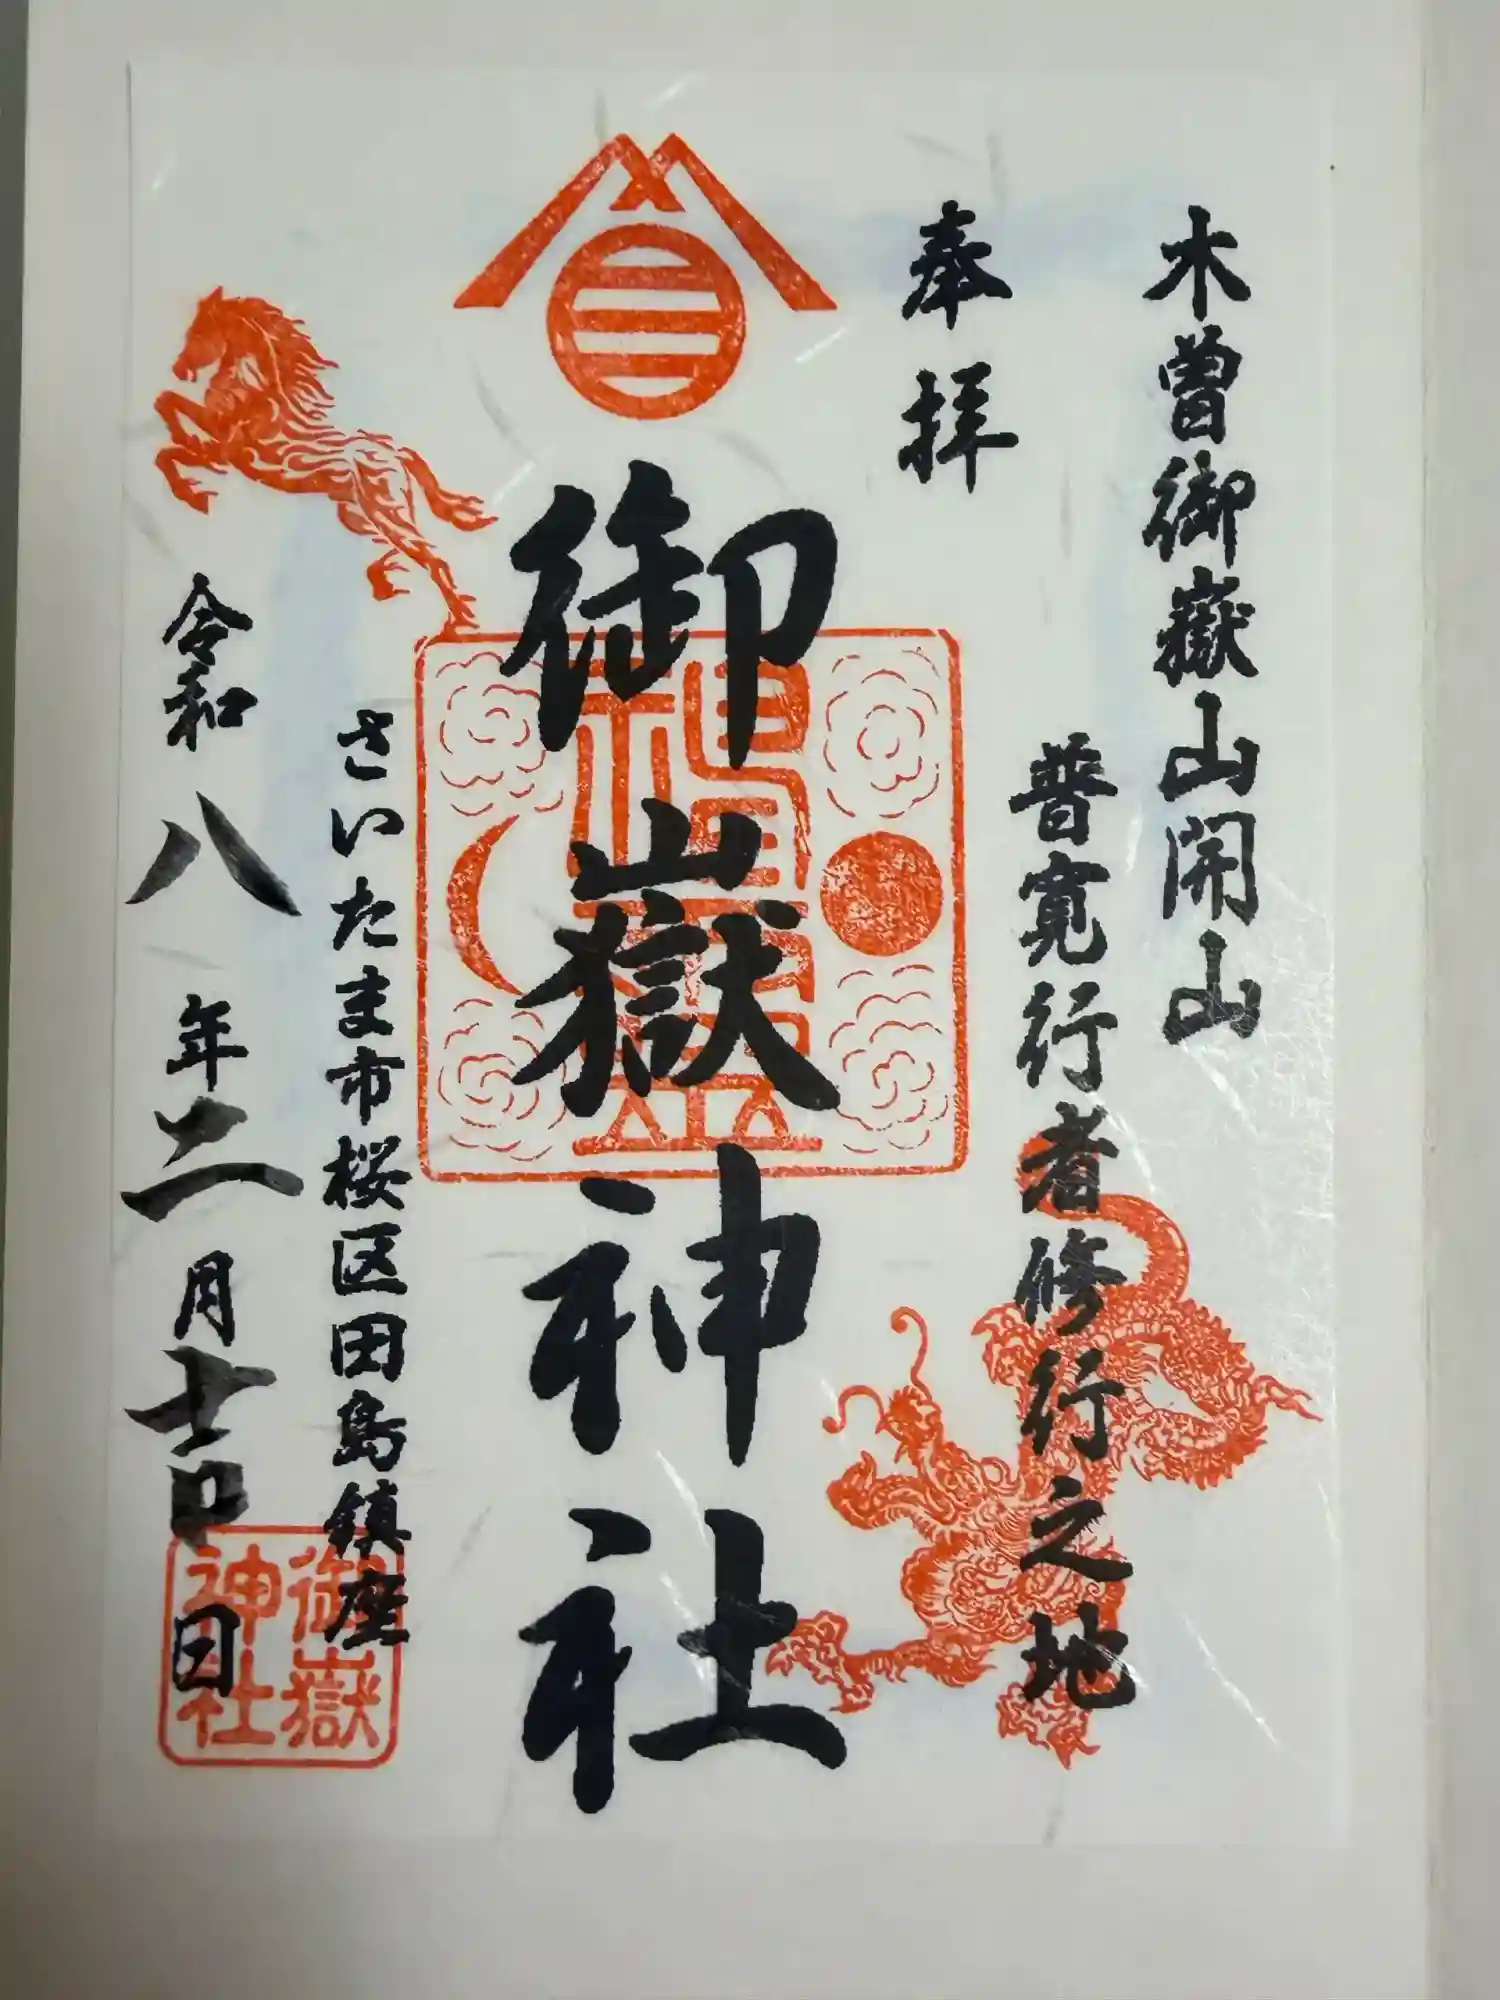 木曽御嶽山開山
普寛行者修行之地
奉拝
御嶽神社
さいたま市桜区田島鎮座
令和八年二月十一日
御嶽
神社